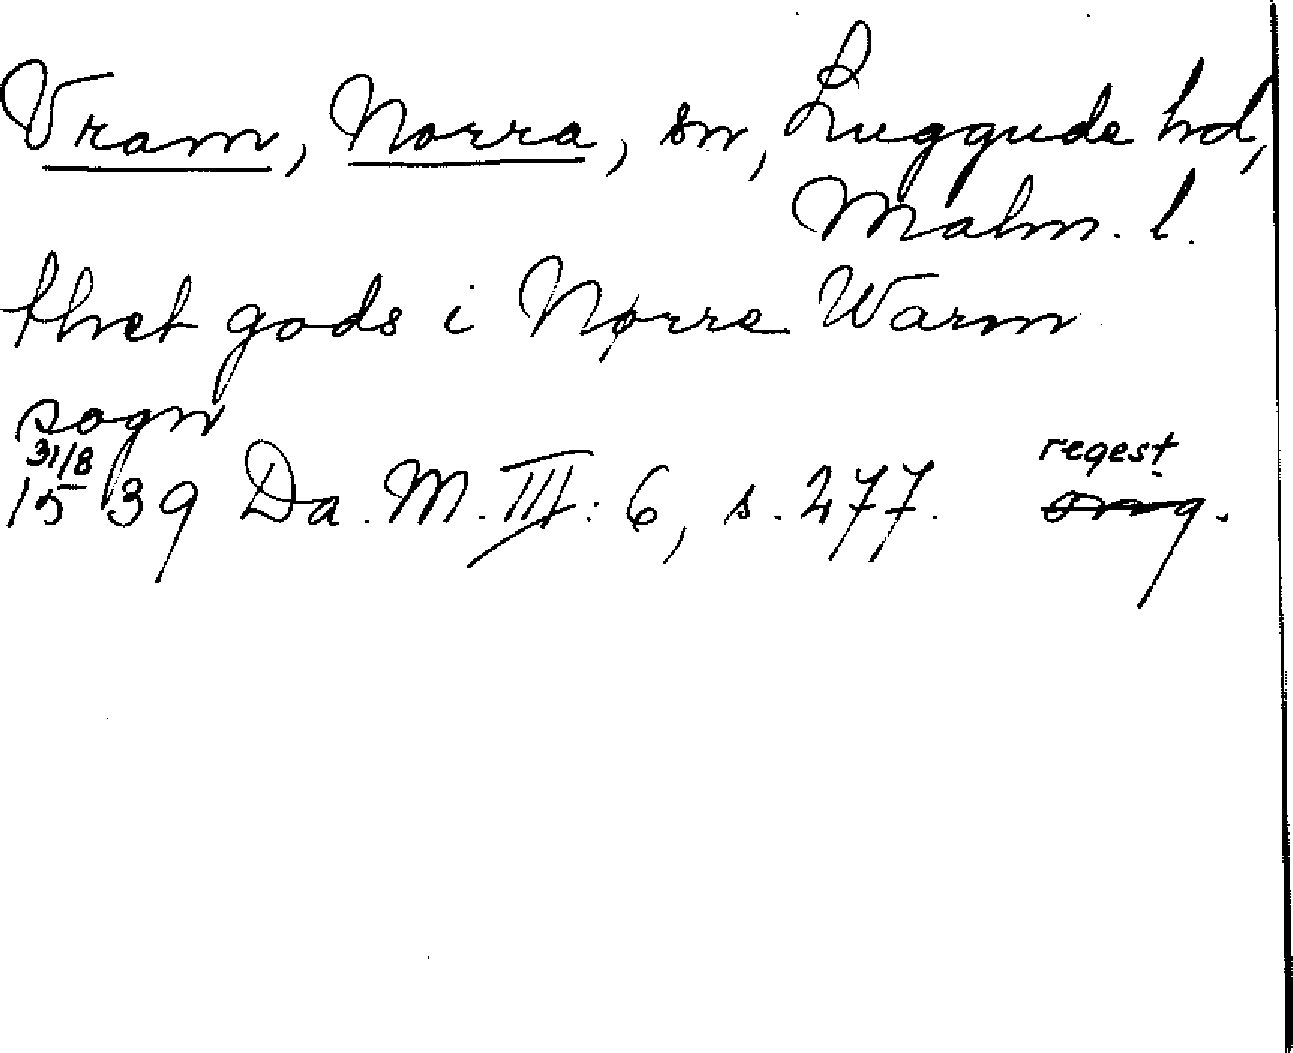 Vram, Norra, sn, Luggude hd,
Malm. l.
thet gods i Nørre Warm
sogn
31/8
1539 Da. M. III: 6, s. 277. regest.